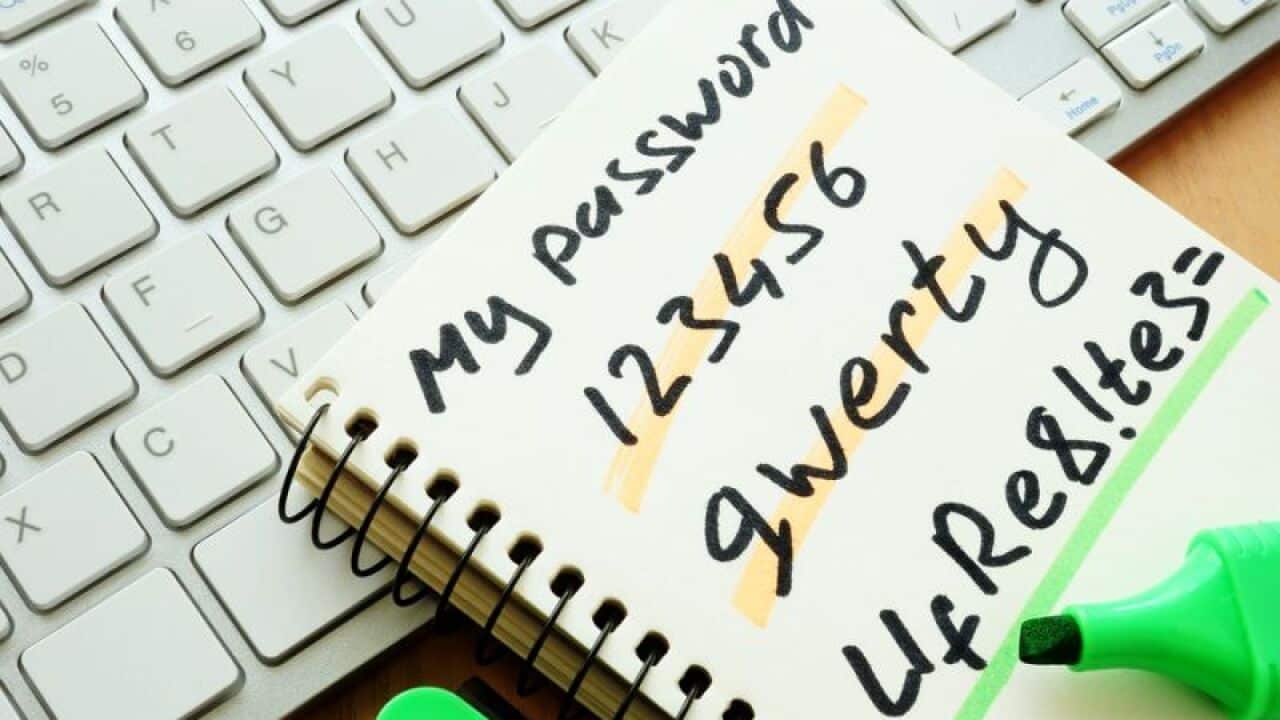 My password
123456
qwerty
UfRe8!te3=
^ 6
U
K
/
PgUp
↓ PgDn
← Home
% 5
Y
J
T
H
R
G
F
D
V
C
X